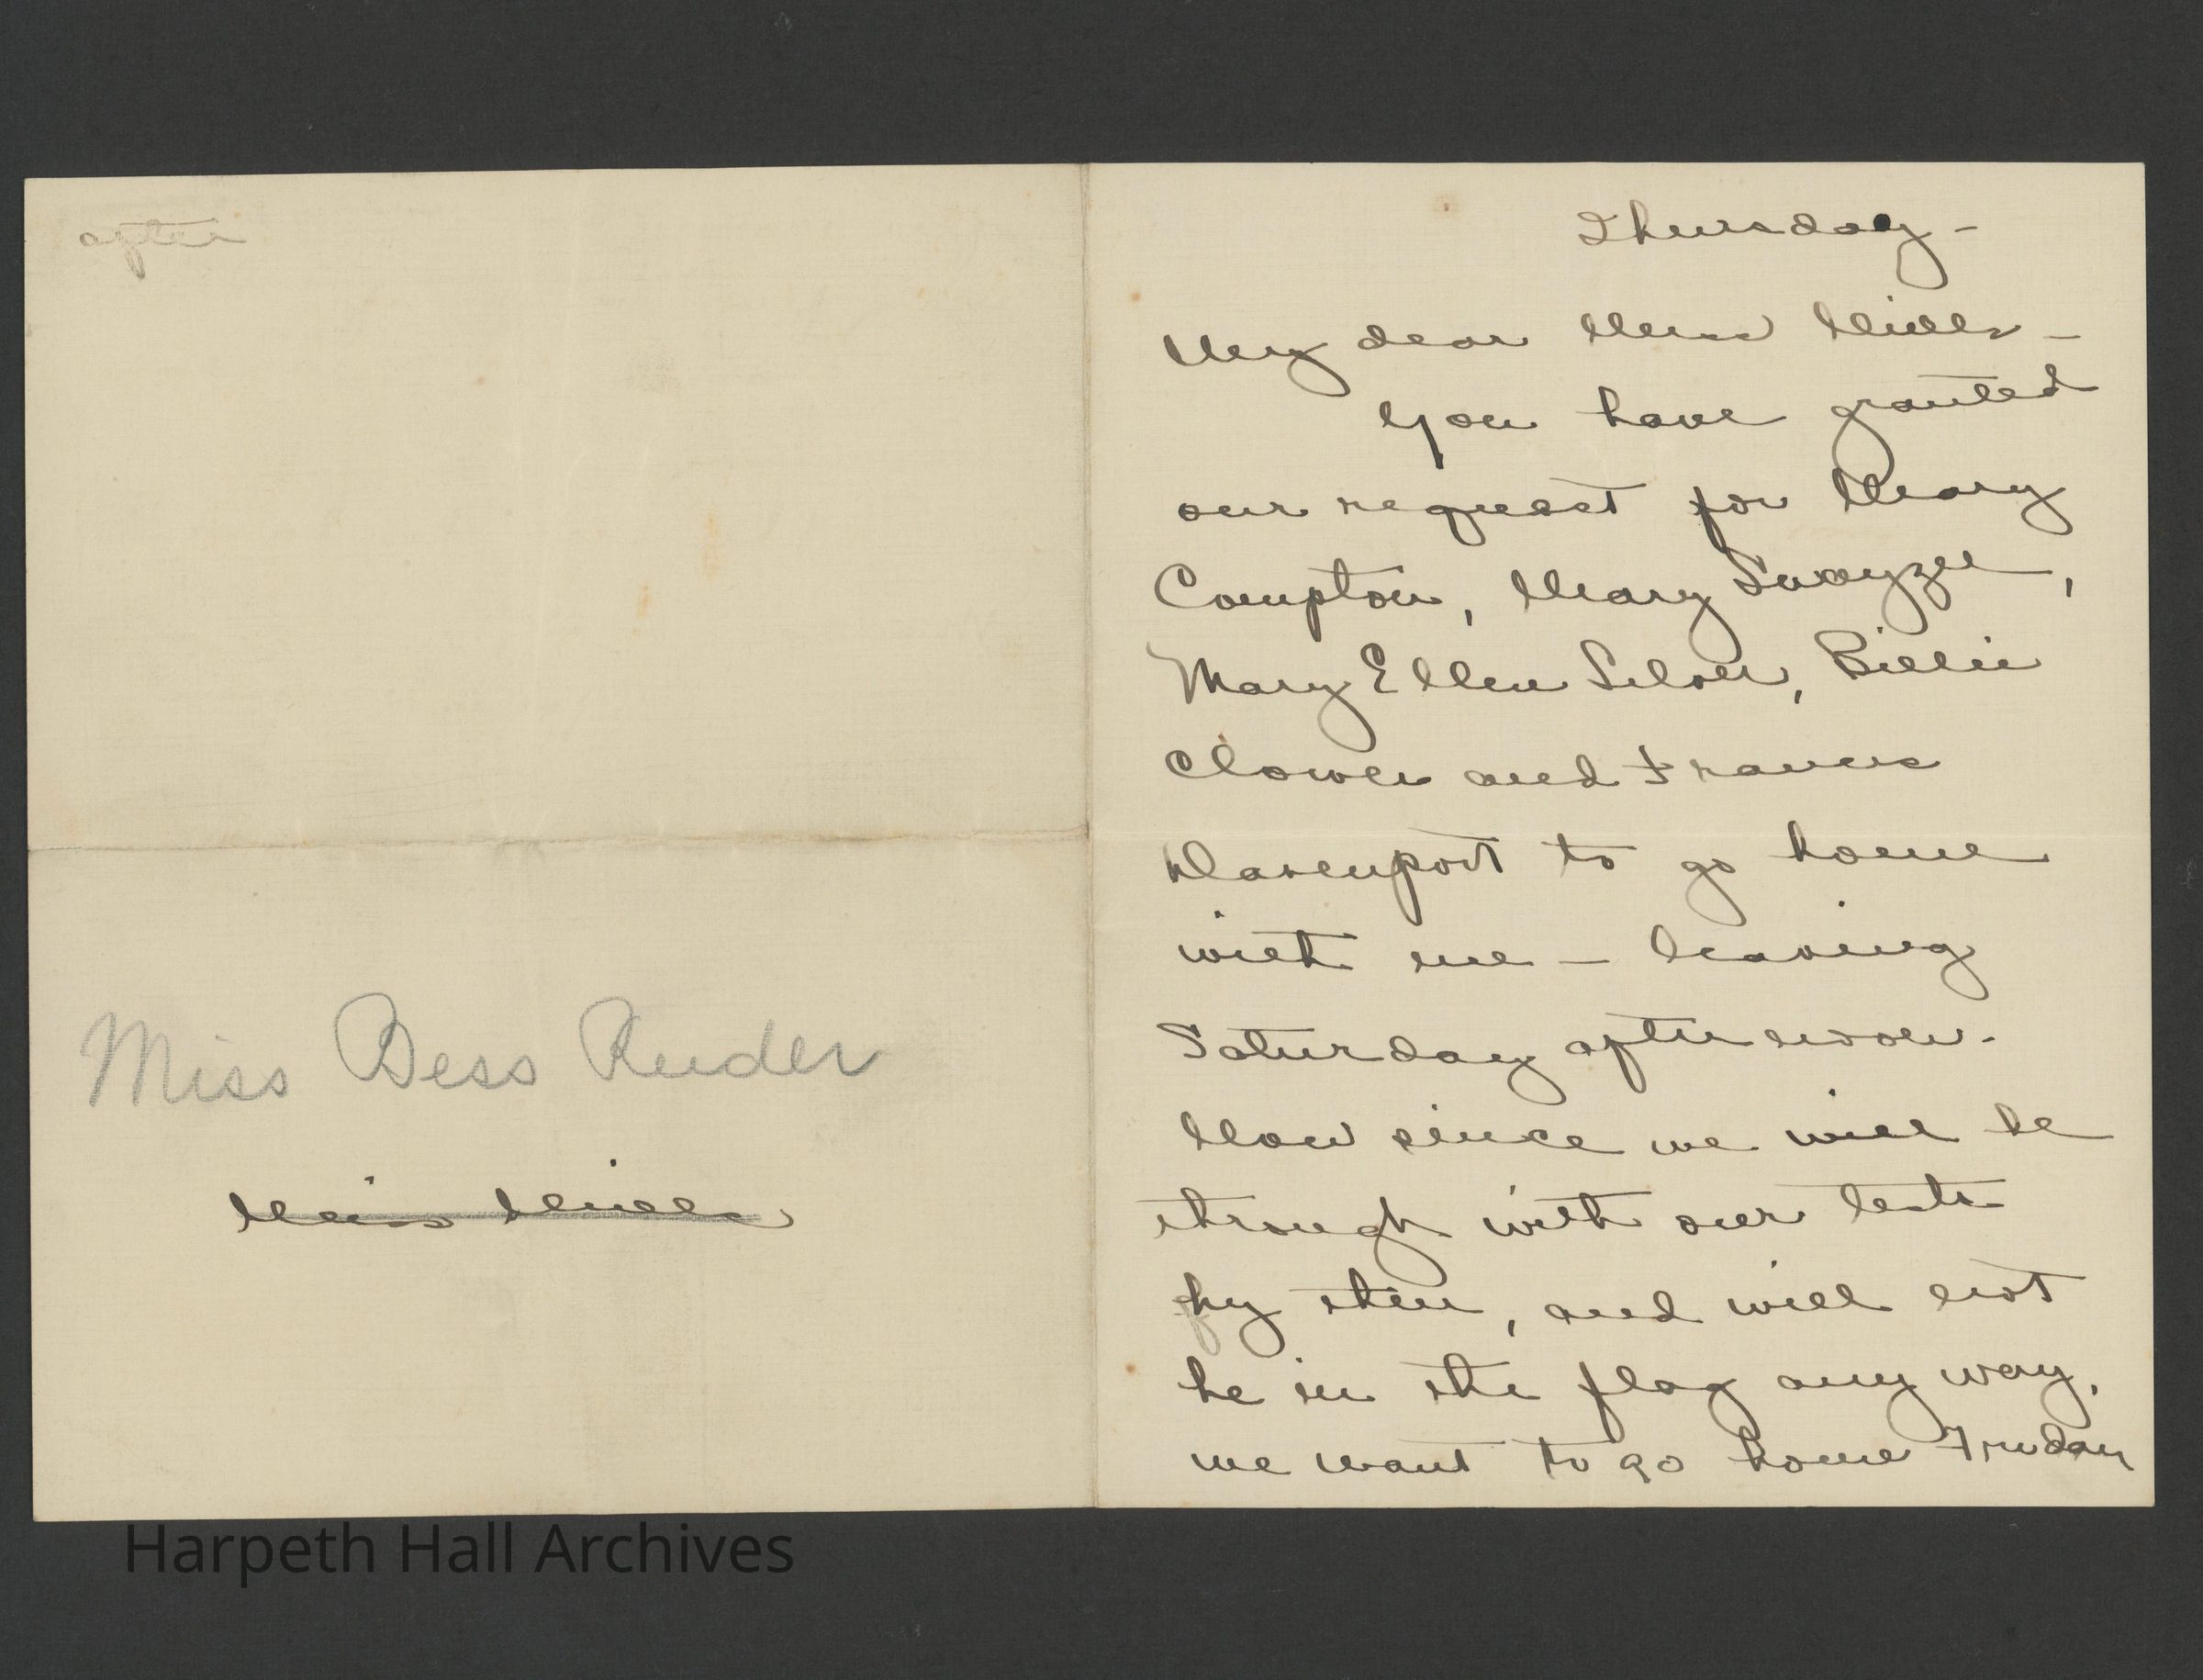 after
Miss Bess Reuder
Miss Mills
Thursday -
My dear Miss Mills -
You have granted
our request for Mary
Compton, Mary Swayzee,
Mary Ellen Silver, Billie
Clower and Francis
Davenport to go home
with me - leaving
Saturday afternoon.
Now since we will be
through with our tests
by then, and will not
be in the flag any way,
we want to go home Friday
Harpeth Hall Archives